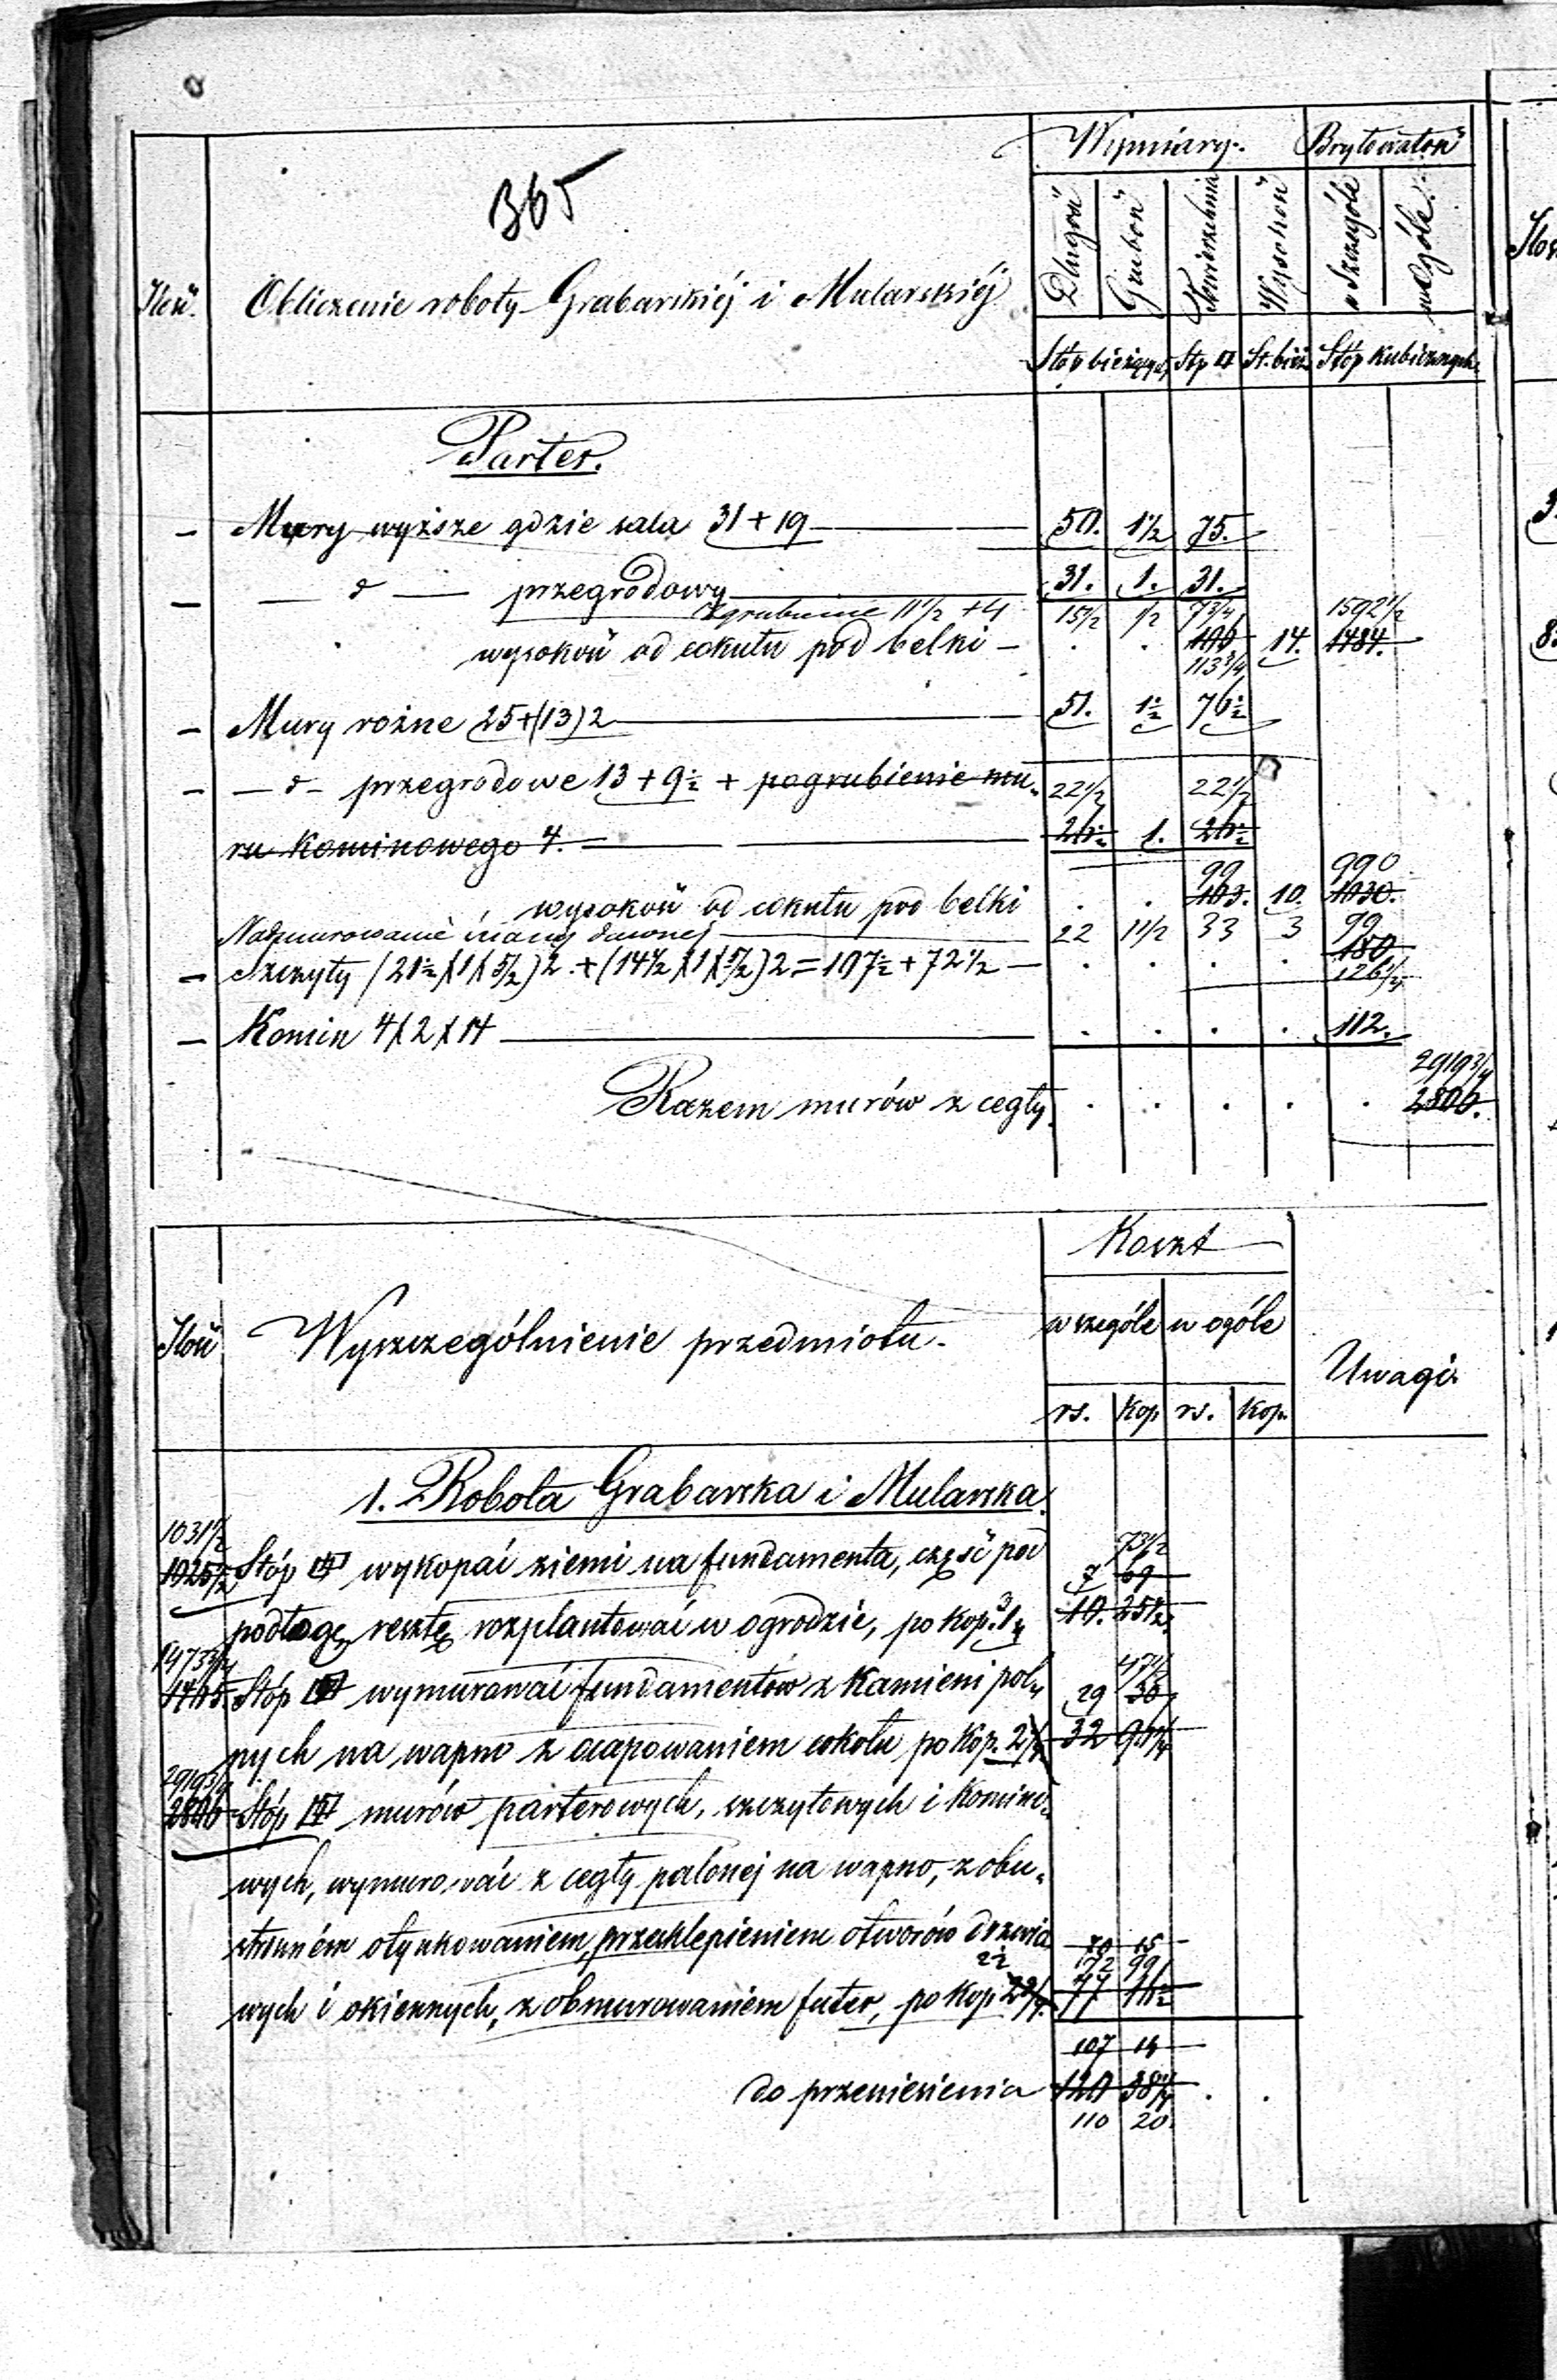 365
Wymiary. Brytowatość
Ilość. Obliczenie roboty Grabarskiéj i Mularskiéj Długość Grubość Powierzchnia Wysokość w Szczególe w Ogóle.
Stóp bieżących Stp □ St. bież Stóp Kubicznych
Parter.
– Mury wyższe gdzie sala 31 + 19 50. 1½ 75.
– — d — przegrodowy 31. 1. 31.
zgrubienie 11½ + 4 15½ ½ 7¾ 1592½
wysokość od cokułu pod belki – . . 106 14. 1484.
113¾
– Mury rożne 25+(13)2 51. 1½ 76½
– — d – przegrodowe 13 + 9½ + pogrubienie mu- 22½ 22½
ru kominowego 4. 26½ 1. 26½
99 990
wysokość od cokułu pod belki . . 103. 10. 1030.
Nadmurowanie ściany dawnej 22 1½ 33 3 99
– Szczyty (21½ X 1 X 5/2) 2 + (14½ X 1 X 5/2) 2 = 107½ + 72½ – . . . . 180
126¼
– Komin 4 X 2 X 14 . . . . 112.
2919¾
Razem murów z cegły . . . . . 2806.
Koszt
Ilość Wyszczególnienie przedmiotu. w szczególe w ogóle Uwagi.
rs. kop rs. kop.
1. Robota Grabarska i Mularska.
1031½ 73½
1025½ Stóp wykopać ziemi na fundamenta, część pod 7 69
podłogę resztę rozplantować w ogrodzie, po kop. 10. 25½
1473¾ 47½
1465 Stóp wymurować fundamentów z kamieni pol- 29 30
nych na wapno z ocapowaniem cokołu po kop. 2¼ 32 96¼
2919¾
2806 Stóp murów parterowych, szczytowych i komino-
wych, wymurować z cegły palonej na wapno, z obu-
stronném otynkowaniem, przesklepieniem otworów drzwio 70 15
2½ 72 99
wych i okiennych, z obmurowaniem futer, po kop 2¾ 77 16½
107 14
do przeniesienia 120 38¼ . .
110 20.